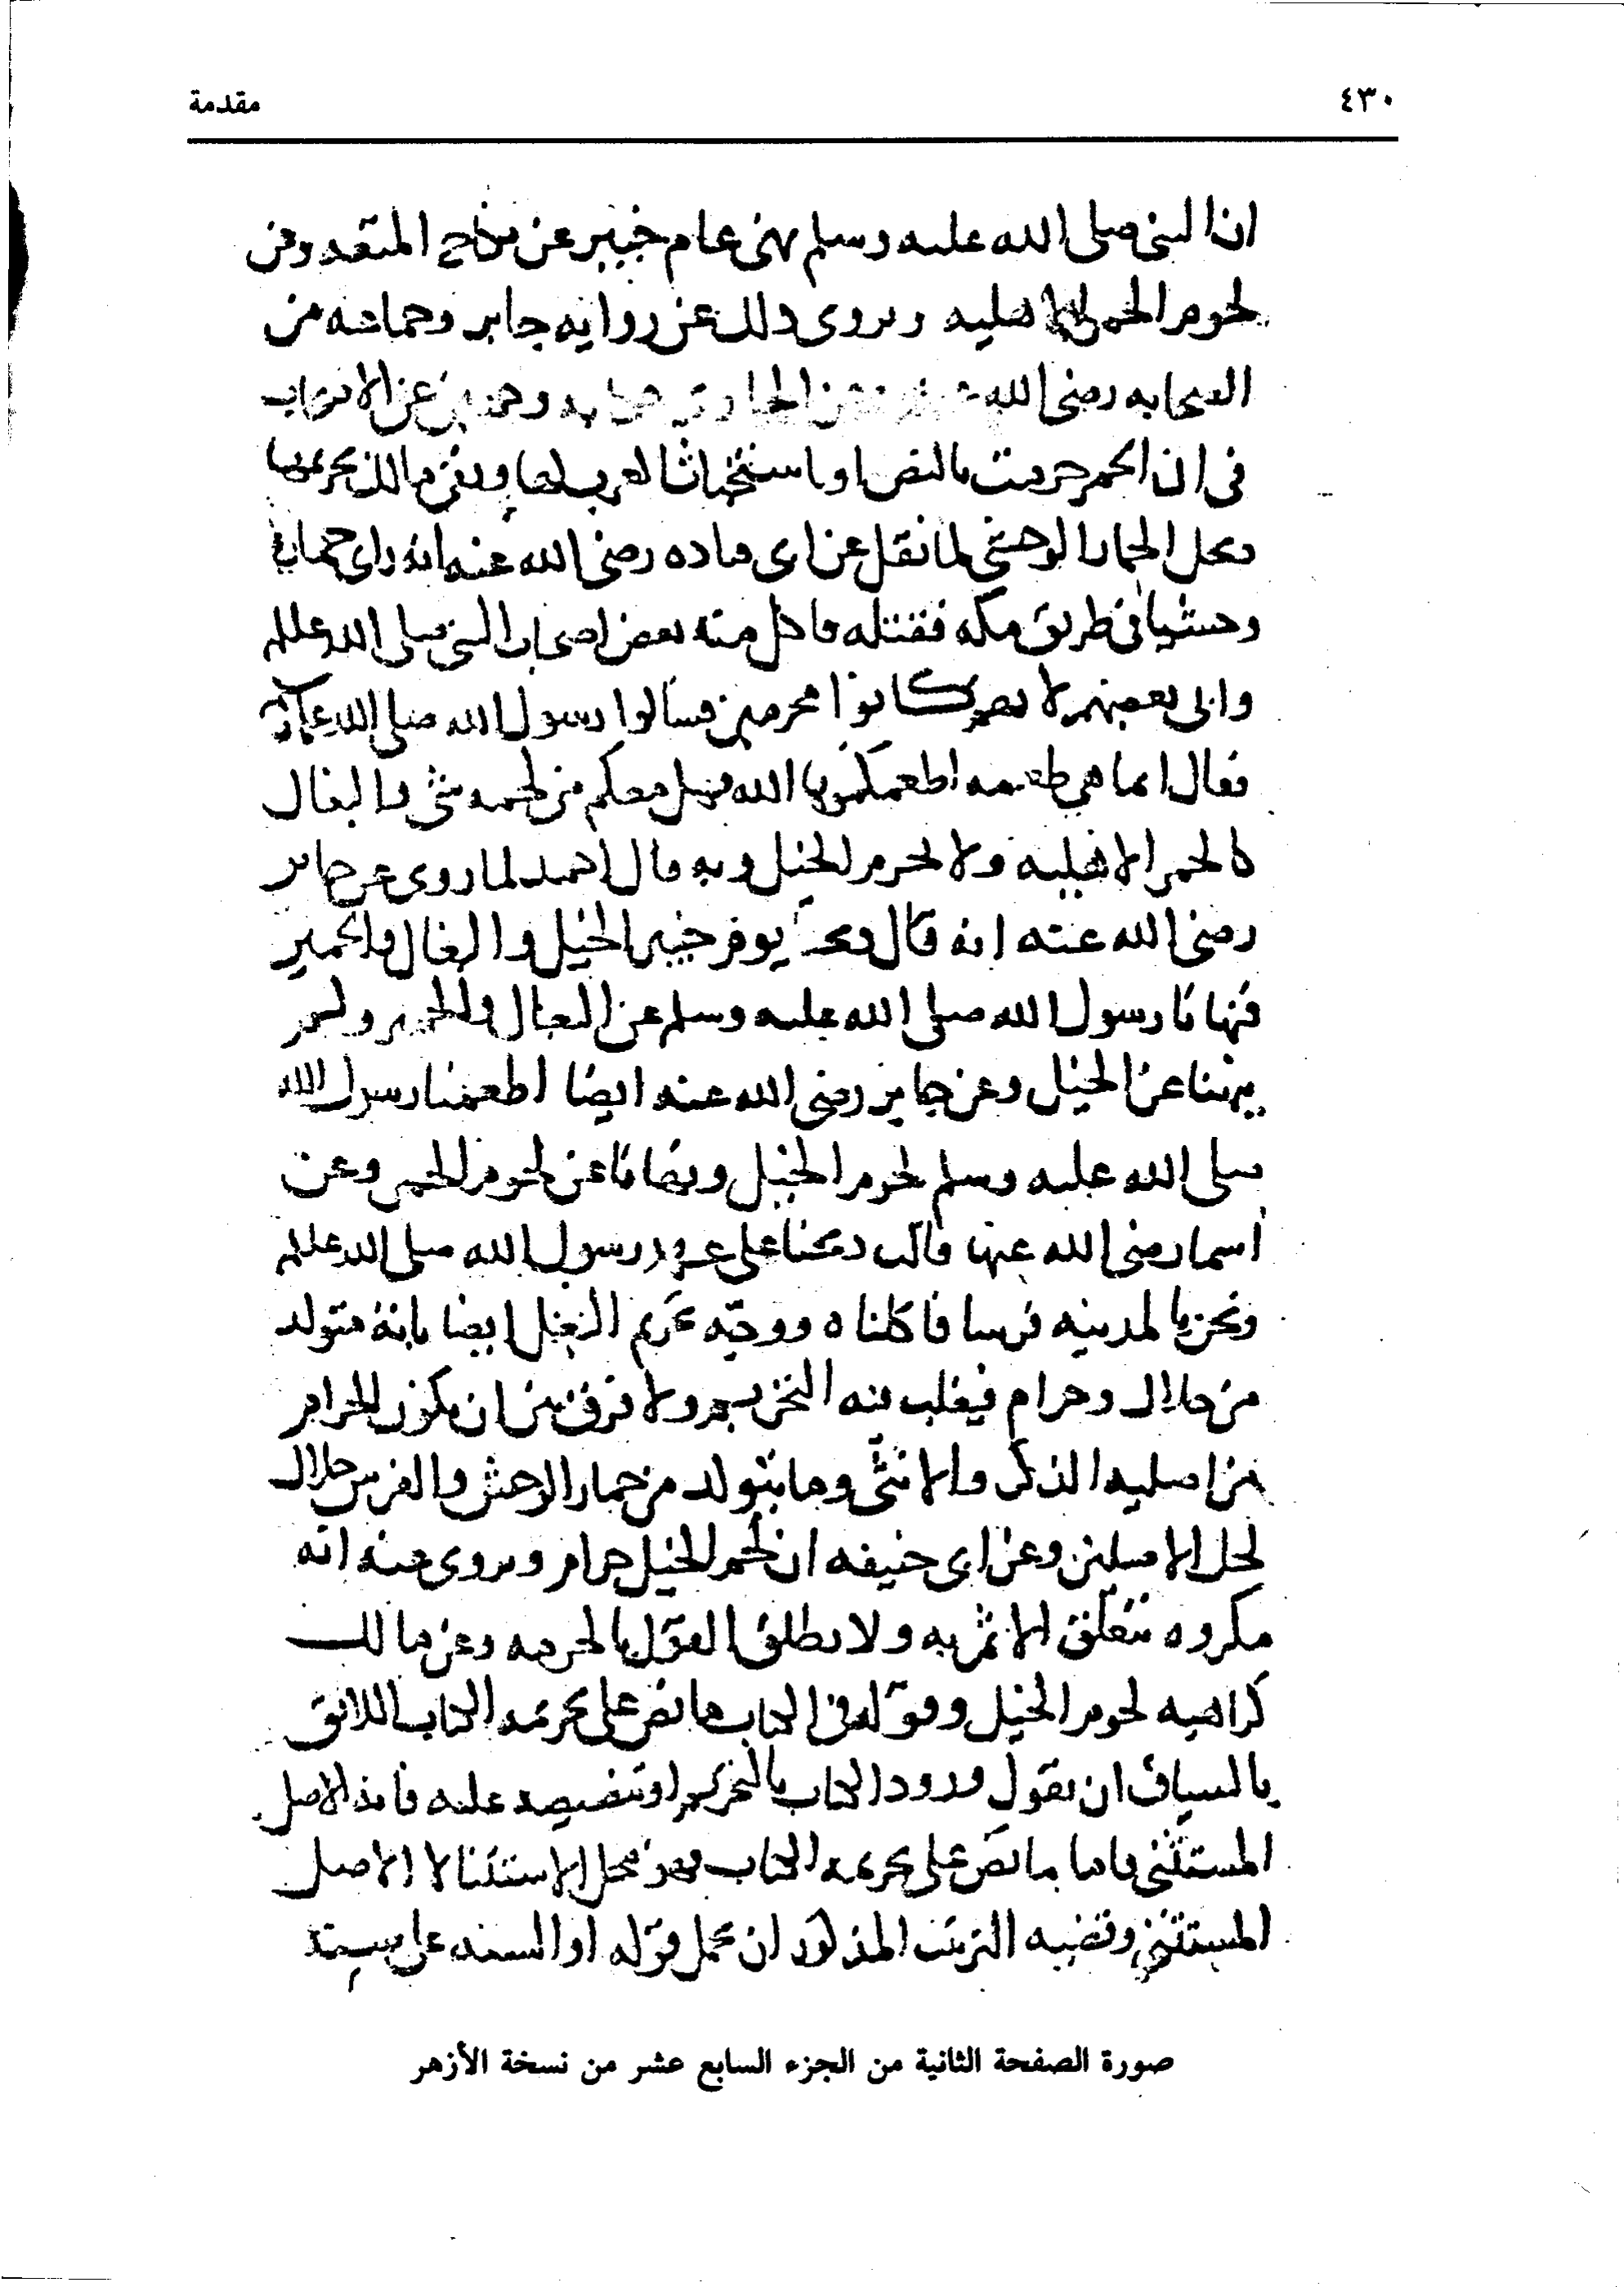 ٤٣٠ مقدمة
ان النبي صلى الله عليه وسلم نهى عام خيبر عن نكاح المتعه وعن
لحوم الحمر الاهليه ويروى ذلك عن روايه جابر وجماعه من
الصحابه رضى الله عن الاصحاب
في ان الحمر حرمت بالنص او باستخباث العرب لها وعن مالك
ويحل الحمار الوحشي لما نقل عن ابى قتاده رضى الله عنه انه راى حمارا
وحشيا في طريق مكه فقتله فاكل منه بعض اصحاب النبي صلى الله عليه وسلم
وابى بعضهم لانهم كانوا محرمين فسالوا رسول الله صلى الله عليه وسلم
فقال انما هي طعمه اطعمكموها الله هل معكم من لحمه شئ والبغال
كالحمر الاهليه ولا تحرم الخيل وبه قال احمد لما روى عن جابر
رضى الله عنه انه قال ذبحنا يوم خيبر الخيل والبغال والحمير
فنهانا رسول الله صلى الله عليه وسلم عن البغال والحمير ولم
ينهنا عن الخيل وعن جابر رضى الله عنه ايضا اطعمنا رسول الله
صلى الله عليه وسلم لحوم الخيل ونهانا عن لحوم الحمر وعن
اسما رضى الله عنها قالت ذبحنا على عهد رسول الله صلى الله عليه وسلم
ونحن بالمدينه فرسا فاكلناه ووجه تحريم البغل ايضا بانه متولد
من حلال وحرام فيغلب فيه التحريم ولا فرق بين ان يكون الحرام
من اصليه الذكر والانثى وما يتولد من حمار الوحش والفرس حلال
لحل الاصلين وعن ابى حنيفه ان لحم الخيل حرام ويروى عنه انه
مكروه يتعلق الاثم به ولا يطلق القول بالحرمه وعن مالك
كراهيه لحوم الخيل وقوله في الكتاب ما نص على تحريمه الكتاب اللائق
بالسياق ان يقول ورود الكتاب بالتحريم او تنصيصه عليه فانه الاصل
المستثنى فاما ما نص على تحريمه الكتاب فهو محل الاستثنا لا الاصل
المستثنى وقضيه الترتيب المذكور ان يحمل قوله او السنه على
صورة الصفحة الثانية من الجزء السابع عشر من نسخة الأزهر